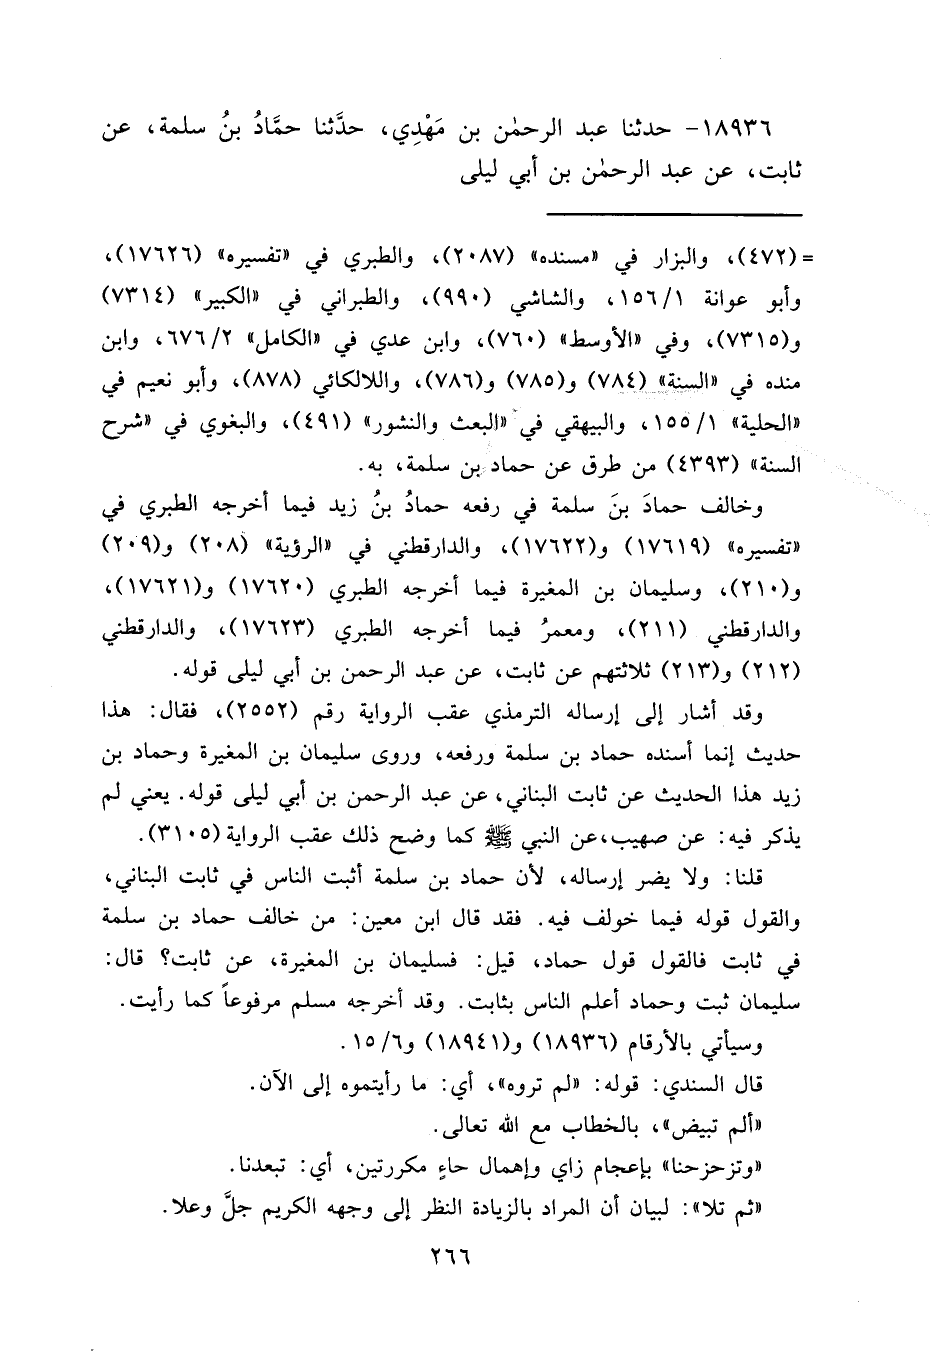 ١٨٩٣٦- حدثنا عبد الرحمٰن بن مَهْدِي، حدَّثنا حمَّادُ بنُ سلمة، عن
ثابت، عن عبد الرحمٰن بن أبي ليلى
= (٤٧٢)، والبزار في «مسنده» (٢٠٨٧)، والطبري في «تفسيره» (١٧٦٢٦)،
وأبو عوانة ١/ ١٥٦، والشاشي (٩٩٠)، والطبراني في «الكبير» (٧٣١٤)
و(٧٣١٥)، وفي «الأوسط» (٧٦٠)، وابن عدي في «الكامل» ٢/ ٦٧٦، وابن
منده في «السنة» (٧٨٤) و(٧٨٥) و(٧٨٦)، واللالكائي (٨٧٨)، وأبو نعيم في
«الحلية» ١/ ١٥٥، والبيهقي في «البعث والنشور» (٤٩١)، والبغوي في «شرح
السنة» (٤٣٩٣) من طرق عن حماد بن سلمة، به.
وخالف حمادَ بنَ سلمة في رفعه حمادُ بنُ زيد فيما أخرجه الطبري في
«تفسيره» (١٧٦١٩) و(١٧٦٢٢)، والدارقطني في «الرؤية» (٢٠٨) و(٢٠٩)
و(٢١٠)، وسليمان بن المغيرة فيما أخرجه الطبري (١٧٦٢٠) و(١٧٦٢١)،
والدارقطني (٢١١)، ومعمرُ فيما أخرجه الطبري (١٧٦٢٣)، والدارقطني
(٢١٢) و(٢١٣) ثلاثتهم عن ثابت، عن عبد الرحمن بن أبي ليلى قوله.
وقد أشار إلى إرساله الترمذي عقب الرواية رقم (٢٥٥٢)، فقال: هذا
حديث إنما أسنده حماد بن سلمة ورفعه، وروى سليمان بن المغيرة وحماد بن
زيد هذا الحديث عن ثابت البناني، عن عبد الرحمن بن أبي ليلى قوله. يعني لم
يذكر فيه: عن صهيب،عن النبي ﷺ كما وضح ذلك عقب الرواية (٣١٠٥).
قلنا: ولا يضر إرساله، لأن حماد بن سلمة أثبت الناس في ثابت البناني،
والقول قوله فيما خولف فيه. فقد قال ابن معين: من خالف حماد بن سلمة
في ثابت فالقول قول حماد، قيل: فسليمان بن المغيرة، عن ثابت؟ قال:
سليمان ثبت وحماد أعلم الناس بثابت. وقد أخرجه مسلم مرفوعاً كما رأيت.
وسيأتي بالأرقام (١٨٩٣٦) و(١٨٩٤١) و٦/ ١٥.
قال السندي: قوله: «لم تروه»، أي: ما رأيتموه إلى الآن.
«ألم تبيض»، بالخطاب مع الله تعالى.
«وتزحزحنا» بإعجام زاي وإهمال حاءٍ مكررتين، أي: تبعدنا.
«ثم تلا»: لبيان أن المراد بالزيادة النظر إلى وجهه الكريم جلَّ وعلا.
٢٦٦